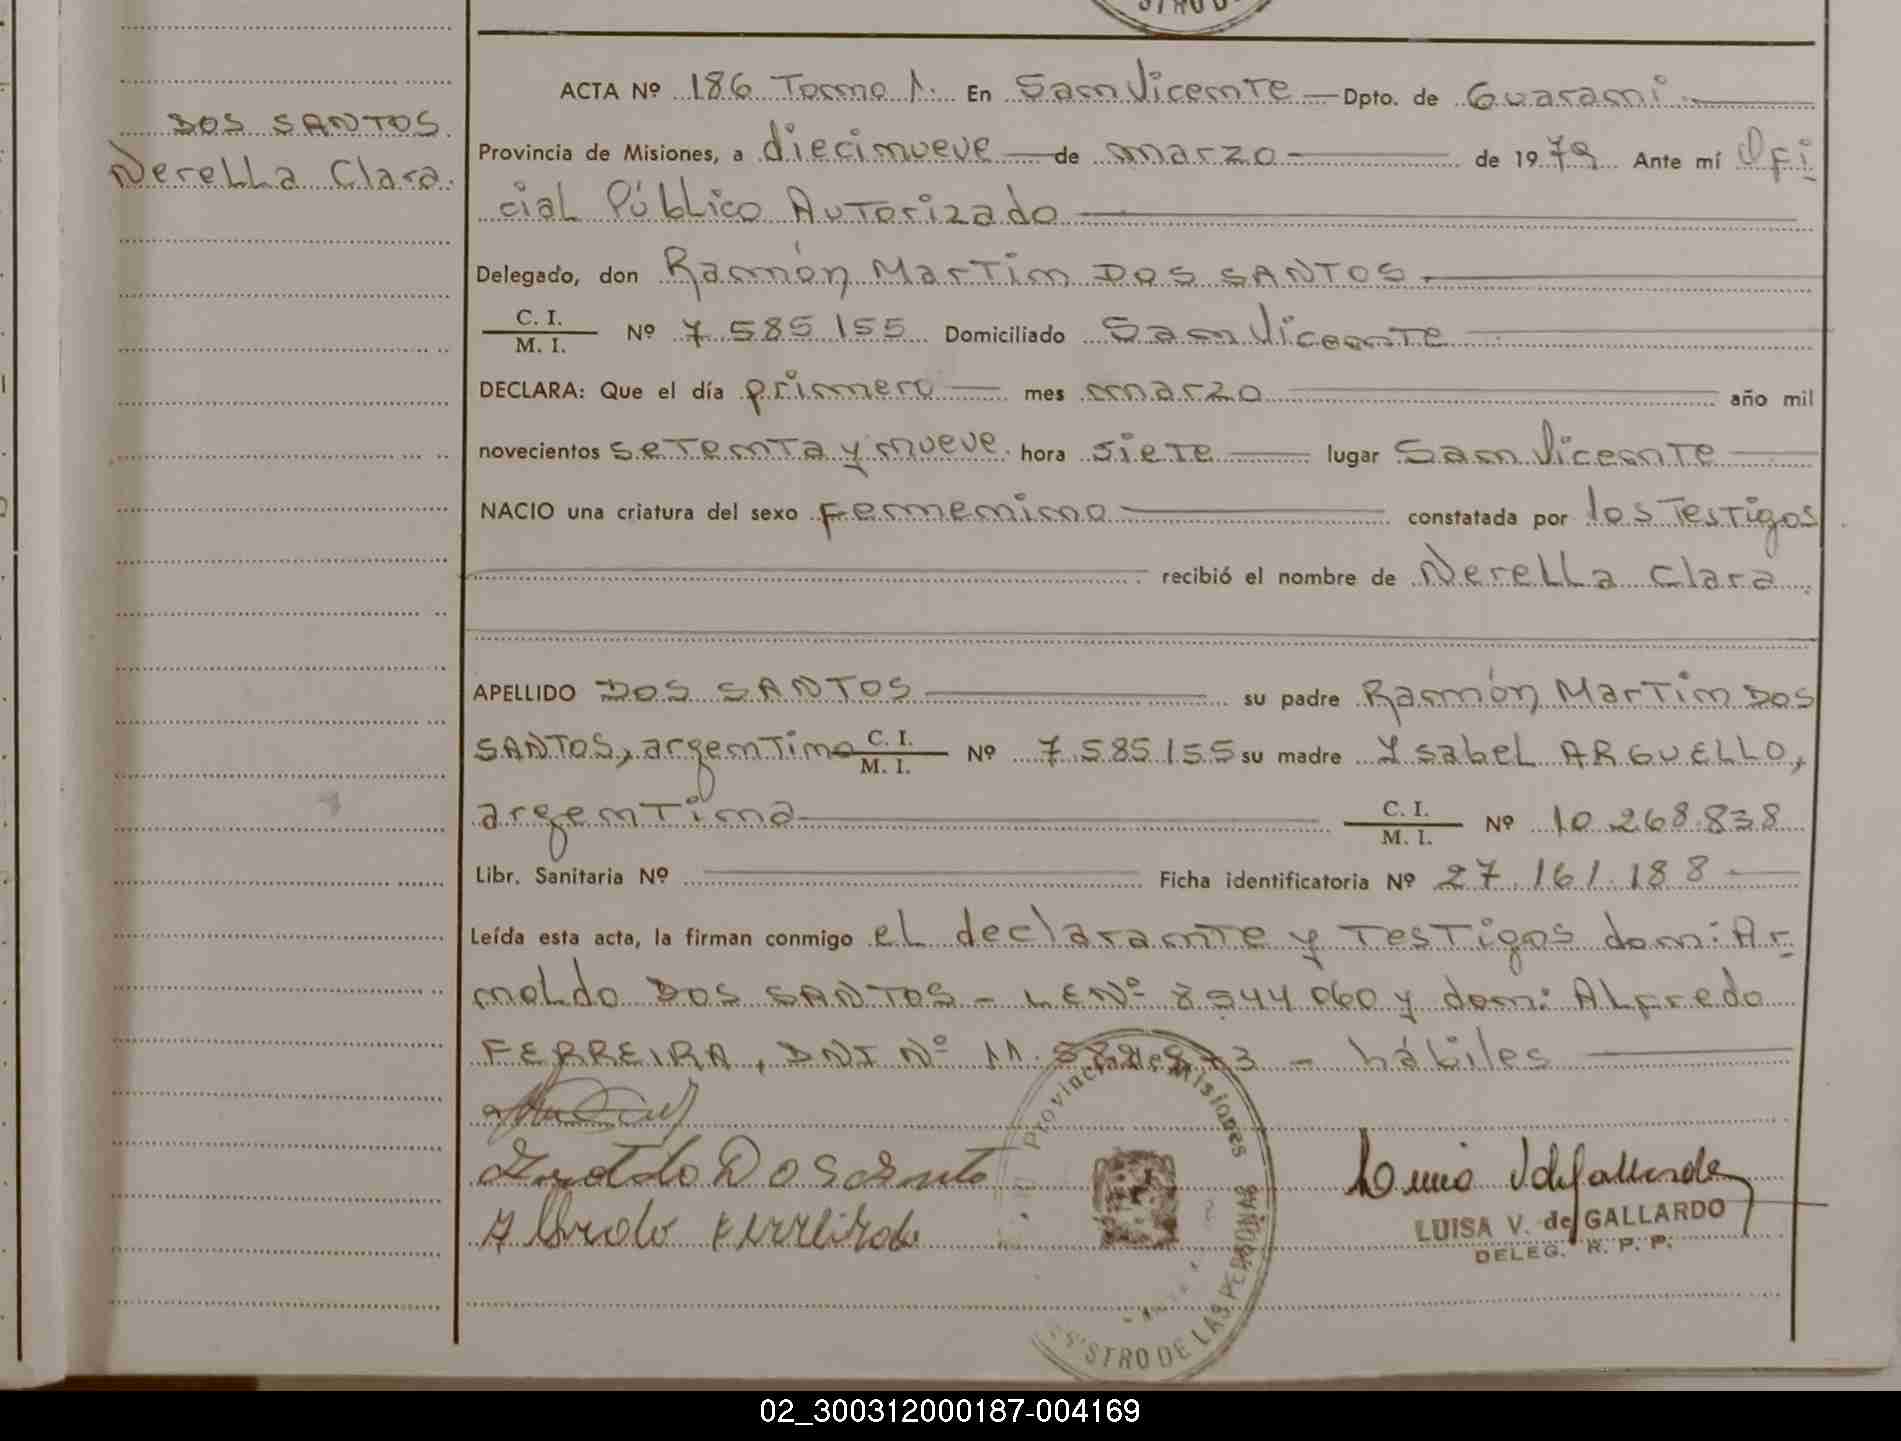 STRO D
ACTA Nº 186 Tomo 1. En San Vicente Dpto. de Guaraní
DOS SANTOS
Nerella Clara.
Provincia de Misiones, a diecinueve de marzo de 1979 Ante mí Ofi
cial Público Autorizado
Delegado, don Ramón Martin DOS SANTOS
C. I.
M. I. Nº 7.585.155 Domiciliado San Vicente
DECLARA: Que el día primero mes marzo año mil
novecientos setenta y nueve hora siete lugar San Vicente
NACIO una criatura del sexo femenino constatada por los testigos
recibió el nombre de Nerella Clara
APELLIDO DOS SANTOS su padre Ramón Martin DOS
SANTOS, argentino C. I. M. I. Nº 7.585.155 su madre Ysabel ARGUELLO,
argentina C. I. M. I. Nº 10.268.838
Libr. Sanitaria Nº Ficha identificatoria Nº 27.161.188
Leída esta acta, la firman conmigo el declarante y testigos don: Ar
noldo DOS SANTOS - LE Nº 8544060 y don: Alfredo
FERREIRA, DNI Nº 11. - hábiles
Provincia de Misiones
Arnoldo Dos Santo
Alfredo Ferreira
LUISA V. de GALLARDO
DELEG. R. P. P.
STRO DE LAS PERSONAS
02_300312000187-004169